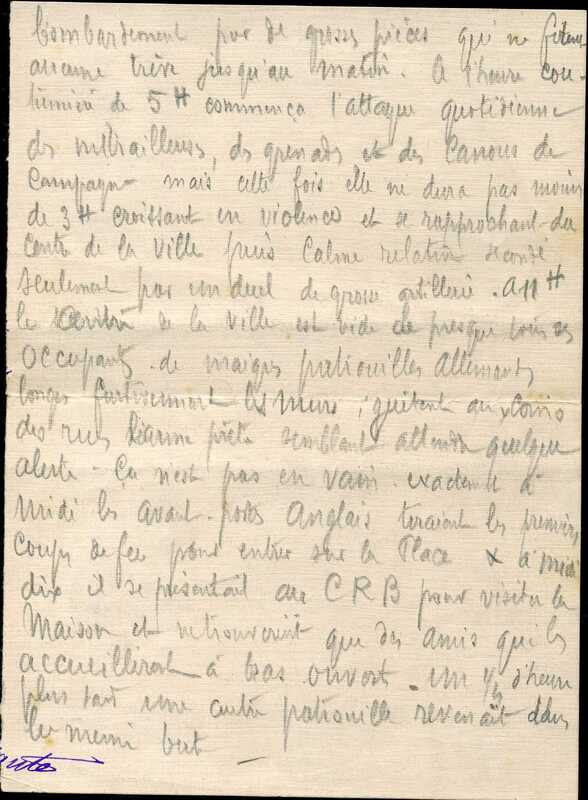 bombardement par de grosses pièces qui ne firent
aucune trève jusqu'au matin. A l'heure cou-
tumière de 5H commença l'attaque quotidienne
des mitrailleuses, des grenades et des canons de
Campagne mais cette fois elle ne dura pas moins
de 3H croissant en violence et se rapprochant du
Centre de la Ville puis Calme relatif
seulement par un duel de grosse artillerie. A 11H
le de la ville est vide de presque tous ses
occupants. de maigres patrouilles allemands
longes furtivement les murs, guettent au coins
des rues l'arme prête semblant attendre quelque
alerte. Ça n'est pas en vain. exactement à
midi les avant-postes Anglais tiraient les premiers
coups de feu pour entrer sur la Place & à midi
dix il se présentait au CRB pour visiter la
Maison et ne trouvèrent que des amis qui les
accueillirent à bras ouvert. un 1/4 d'heure
plus tard une autre patrouille revenait dans
le meme but